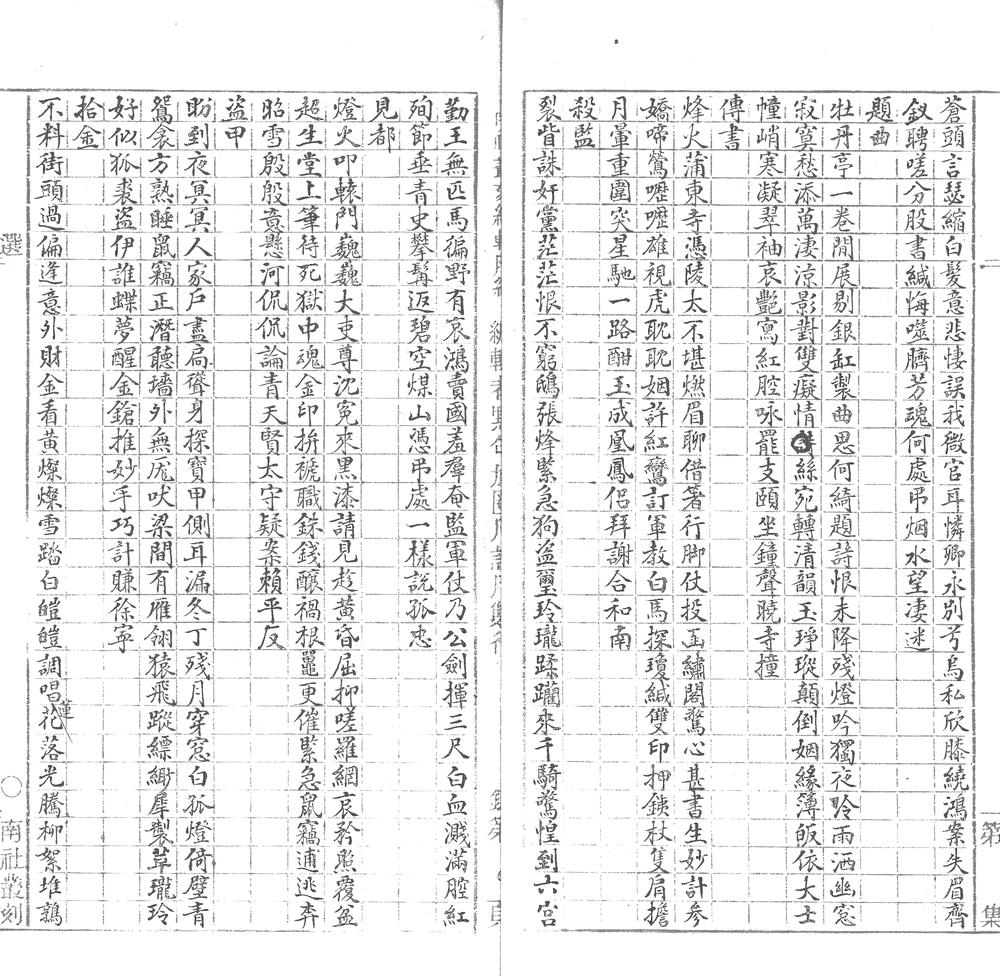 蒼頭言瑟縮白髮意悲悽誤我微官耳憐卿永別兮烏私欣膝繞鴻案失眉齊
釵聘嗟分股書緘悔噬臍芳魂何處弔烟水望凄迷
題曲
牡丹亭一卷閒展剔銀缸製曲思何綺題詩恨未降殘燈吟獨夜冷雨洒幽窓
寂寞愁添萬凄涼影對雙癡情絲宛轉清韻玉琤瑽顛倒姻緣簿皈依大士
幢峭寒凝翠袖哀艷寫紅腔咏罷支頤坐鐘聲曉寺撞
傳書
烽火蒲東寺憑陵太不堪燃眉聊借箸行脚仗投函繡閣驚心甚書生妙計參
嬌啼鶯嚦嚦雄視虎耽耽姻許紅鸞訂軍教白馬探瓊緘雙印押鉄杖隻肩擔
月暈重圍突星馳一路酣玉成凰鳳侶拜謝合和南
殺監
裂眥誅奸黨茫茫恨不窮鴟張烽緊急狗盗璽玲瓏蹂躪來千騎驚惶到六宮
勤王無匹馬徧野有哀鴻賣國羞羣奄監軍仗乃公劍揮三尺白血濺滿腔紅
殉節垂青史攀髯返碧空煤山憑弔處一樣說孤忠
見都
燈火叩轅門巍巍大吏尊沈寃來黑漆請見趁黃昏屈抑嗟羅網哀矜照覆盆
超生堂上筆待死獄中魂金印拚褫職銖錢釀禍根鼉更催緊急鼠竊逋逃奔
昭雪殷殷意懸河侃侃論青天賢太守疑案賴平反
盜甲
盼到夜冥冥人家戶盡扃聳身探寶甲側耳漏冬丁殘月穿窓白孤燈倚壁青
鴛衾方熟睡鼠竊正潛聽墻外無厖吠梁間有雁翎猿飛蹤縹緲犀製革瓏玲
好似狐裘盜伊誰蝶夢醒金鎗推妙手巧計賺徐寧
拾金
不料街頭過偏逢意外財金看黃燦燦雪踏白皚皚調唱蓮花落光騰柳絮堆鶉
第 集
選
南社叢刻